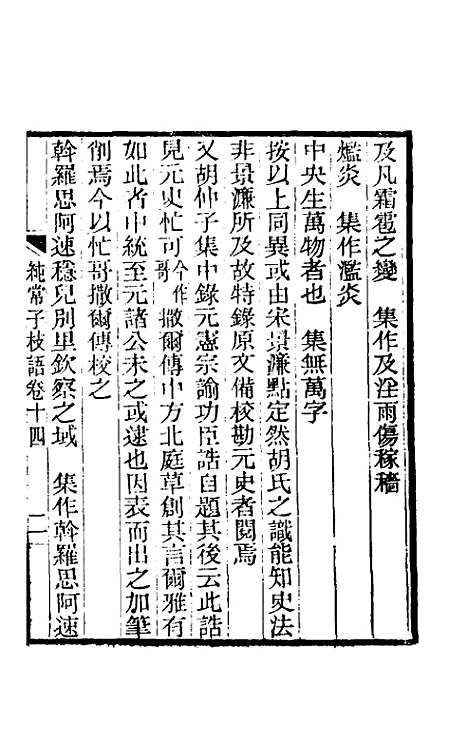 及凡霜雹之變　集作及淫雨傷稼穡
爁炎　集作濫炎
中央生萬物者也　集無萬字
按以上同異或由宋景濂點定然胡氏之識能知史法
非景濂所及故特錄原文備校勘元史者閱焉
又胡仲子集中錄元憲宗諭功臣誥自題其後云此誥
見元史忙可今作哥撒爾傳中方北庭草創其言爾雅有
如此者中統至元諸公未之或逮也因表而出之加筆
削焉今以忙哥撒爾傳校之
斡羅思阿速穩兒別里欽察之域　集作斡羅思阿速
純常子枝語卷十四　二